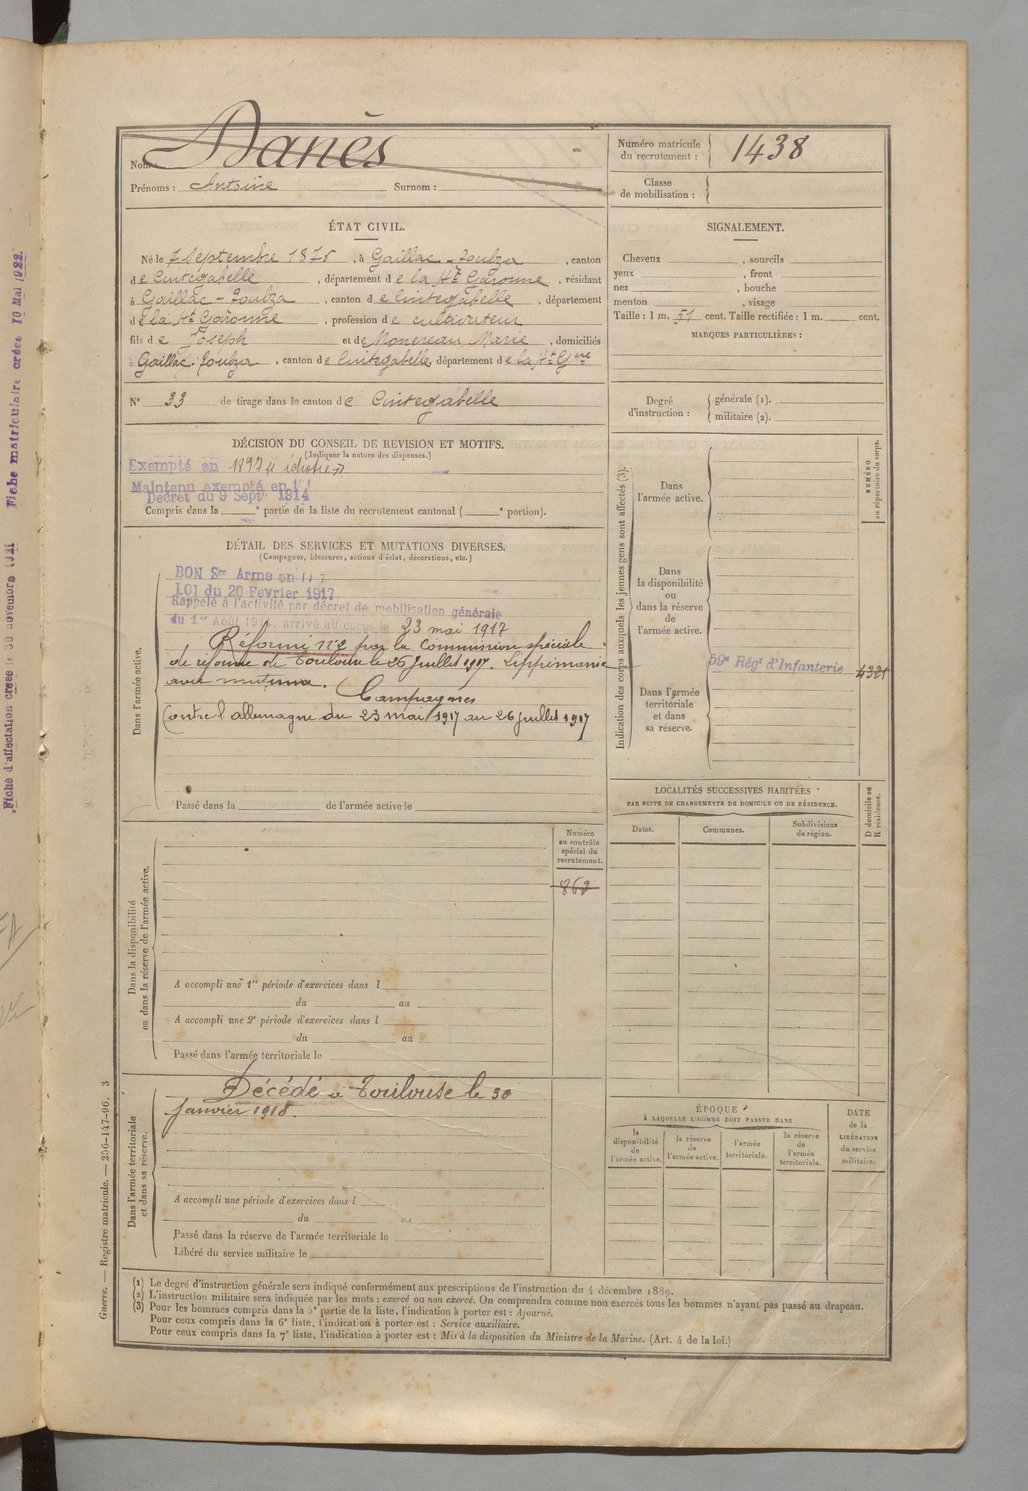 Nom : Danès
Prénoms : Antoine Surnom :
Numéro matricule du recrutement : 1438
Classe de mobilisation :
ÉTAT CIVIL.
Né le 7 Septembre 1876, à Gaillac-Toulza, canton
de Cintegabelle, département de la Hte Garonne, résidant
à Gaillac-Toulza, canton de Cintegabelle, département
de la Hte Garonne, profession de cultivateur
fils de Joseph et de Monereau Marie, domiciliés
à Gaillac-Toulza, canton de Cintegabelle, département de la Hte Gne
N° 33 de tirage dans le canton de Cintegabelle
SIGNALEMENT.
Cheveux , sourcils
yeux , front
nez , bouche
menton , visage
Taille : 1 m. 51 cent. Taille rectifiée : 1 m. cent.
MARQUES PARTICULIÈRES :
Degré d'instruction : générale (1).
militaire (2).
DÉCISION DU CONSEIL DE REVISION ET MOTIFS.
(Indiquer la nature des dispenses.)
Exempté en 1897 « idiotie »
Maintenu exempté en
Décret du 9 Sept 1914
Compris dans la e partie de la liste du recrutement cantonal ( e portion).
DÉTAIL DES SERVICES ET MUTATIONS DIVERSES.
(Campagnes, blessures, actions d'éclat, décorations, etc.)
Dans l'armée active.
BON Sce Armé en
LOI du 20 Fevrier 1917
Rappelé à l'activité par décret de mobilisation générale
du 1er Août 1914, arrivé au corps le 23 mai 1917
Réformé n°2 par la Commission spéciale
de réforme de Toulouse le 26 juillet 1917. Lippémanie
avec mutisme.
Campagnes
Contre l'allemagne du 23 mai 1917 au 26 juillet 1917
Passé dans la de l'armée active le
Indication des corps auxquels les jeunes gens sont affectés (3).
NUMÉRO au répertoire du corps.
Dans l'armée active.
Dans la disponibilité ou dans la réserve de l'armée active.
59e Régt d'Infanterie 4321
Dans l'armée territoriale et dans sa réserve.
LOCALITÉS SUCCESSIVES HABITÉES
PAR SUITE DE CHANGEMENTS DE DOMICILE OU DE RÉSIDENCE.
D domicile ou R résidence.
Dates. Communes. Subdivisions de région.
Numéro au contrôle spécial du recrutement.
862
Dans la disponibilité ou dans la réserve de l'armée active.
A accompli une 1re période d'exercices dans l
du au
A accompli une 2e période d'exercices dans l
du au
Passé dans l'armée territoriale le
Dans l'armée territoriale et dans sa réserve.
Décédé à Toulouse le 30
janvier 1918.
A accompli une période d'exercices dans l
du au
Passé dans la réserve de l'armée territoriale le
Libéré du service militaire le
ÉPOQUE
À LAQUELLE L'HOMME DOIT PASSER DANS
la disponibilité de l'armée active.
la réserve de l'armée active.
l'armée territoriale.
la réserve de l'armée territoriale.
DATE de la LIBÉRATION du service militaire.
(1) Le degré d'instruction générale sera indiqué conformément aux prescriptions de l'instruction du 4 décembre 1889.
(2) L'instruction militaire sera indiquée par les mots : exercé ou non exercé. On comprendra comme non exercés tous les hommes n'ayant pas passé au drapeau.
(3) Pour les hommes compris dans la 5e partie de la liste, l'indication à porter est : Ajourné.
Pour ceux compris dans la 6e liste, l'indication à porter est : Service auxiliaire.
Pour ceux compris dans la 7e liste, l'indication à porter est : Mis à la disposition du Ministre de la Marine. (Art. 4 de la loi.)
Guerre. — Registre matricule. — 250-147-96. 3
Fiche d'affectation créée le 30 novembre 1921 Fiche matriculaire créée 10 Mai 1922.